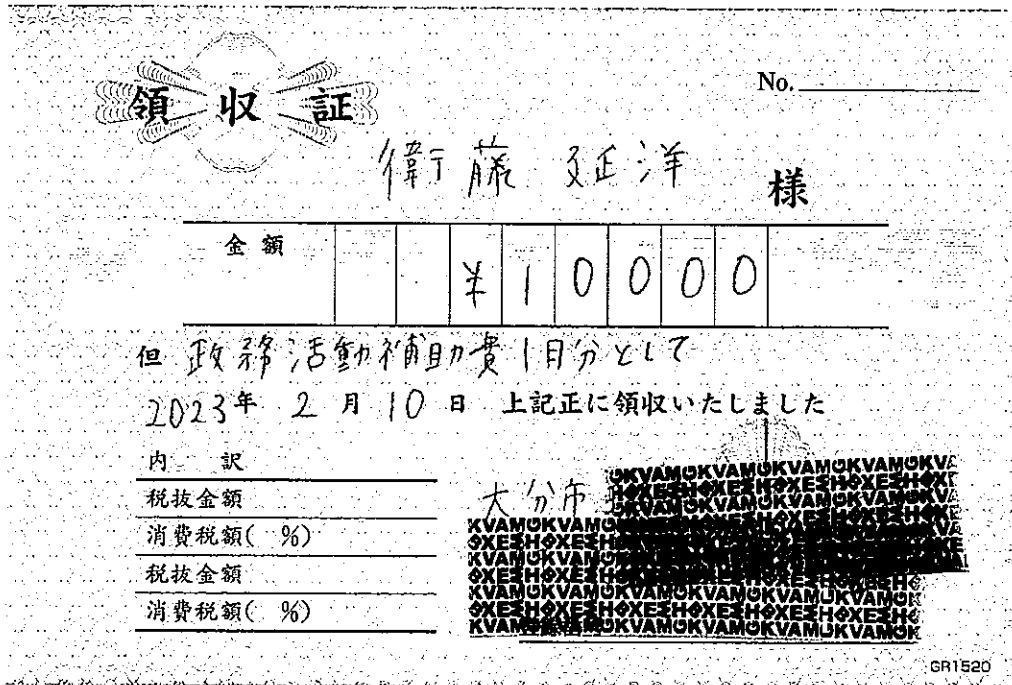 領収証
No.
衛藤 延洋 様
金額 ¥10000
但 政務活動補助費1月分として
2023年 2月 10日 上記正に領収いたしました
内 訳
税抜金額
消費税額( %)
税抜金額
消費税額( %)
大分市
GR1520